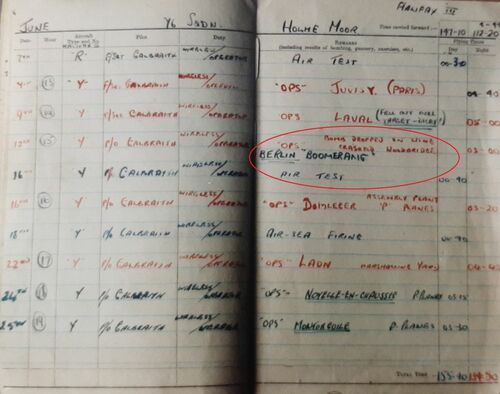 JUNE 76 SQDN. HOLME MOOR HALIFAX III
Date Hour Aircraft Type and No. Pilot Duty REMARKS Time carried forward:— 197-10 112-20
(including results of bombing, gunnery, exercises, etc.) Flying Times
Day Night
R F/SGT GALBRAITH WIRELESS/OPERATOR AIR TEST 00-30
'Y' F/SGT GALBRAITH WIRELESS/OPERATOR "OPS" JUVISY (PARIS)
Y F/SGT GALBRAITH WIRELESS/OPERATOR "OPS" LAVAL 05-00
Y P/O GALBRAITH WIRELESS/OPERATOR "OPS" BOMB DROPPED ON WING
CRASHED WOODBRIDGE 05-00
BERLIN "BOOMERANG"
16TH Y P/O GALBRAITH WIRELESS/OPERATOR AIR TEST 00-40
Y P/O GALBRAITH WIRELESS/OPERATOR "OPS" DOMLEGER ASSEMBLY PLANT "P" PLANES 03-20
18TH Y P/O GALBRAITH WIRELESS/OPERATOR AIR-SEA FIRING
22ND 17 Y P/O GALBRAITH WIRELESS/OPERATOR "OPS" LAON MARSHALLING YARD
24TH 18 Y P/O GALBRAITH WIRELESS/OPERATOR "OPS" NOYELLE-EN-CHAUSSEE P.PLANES
25TH 19 Y P/O GALBRAITH WIRELESS/OPERATOR "OPS" MONTORGUEIL P.PLANES 03-30
TOTAL TIME